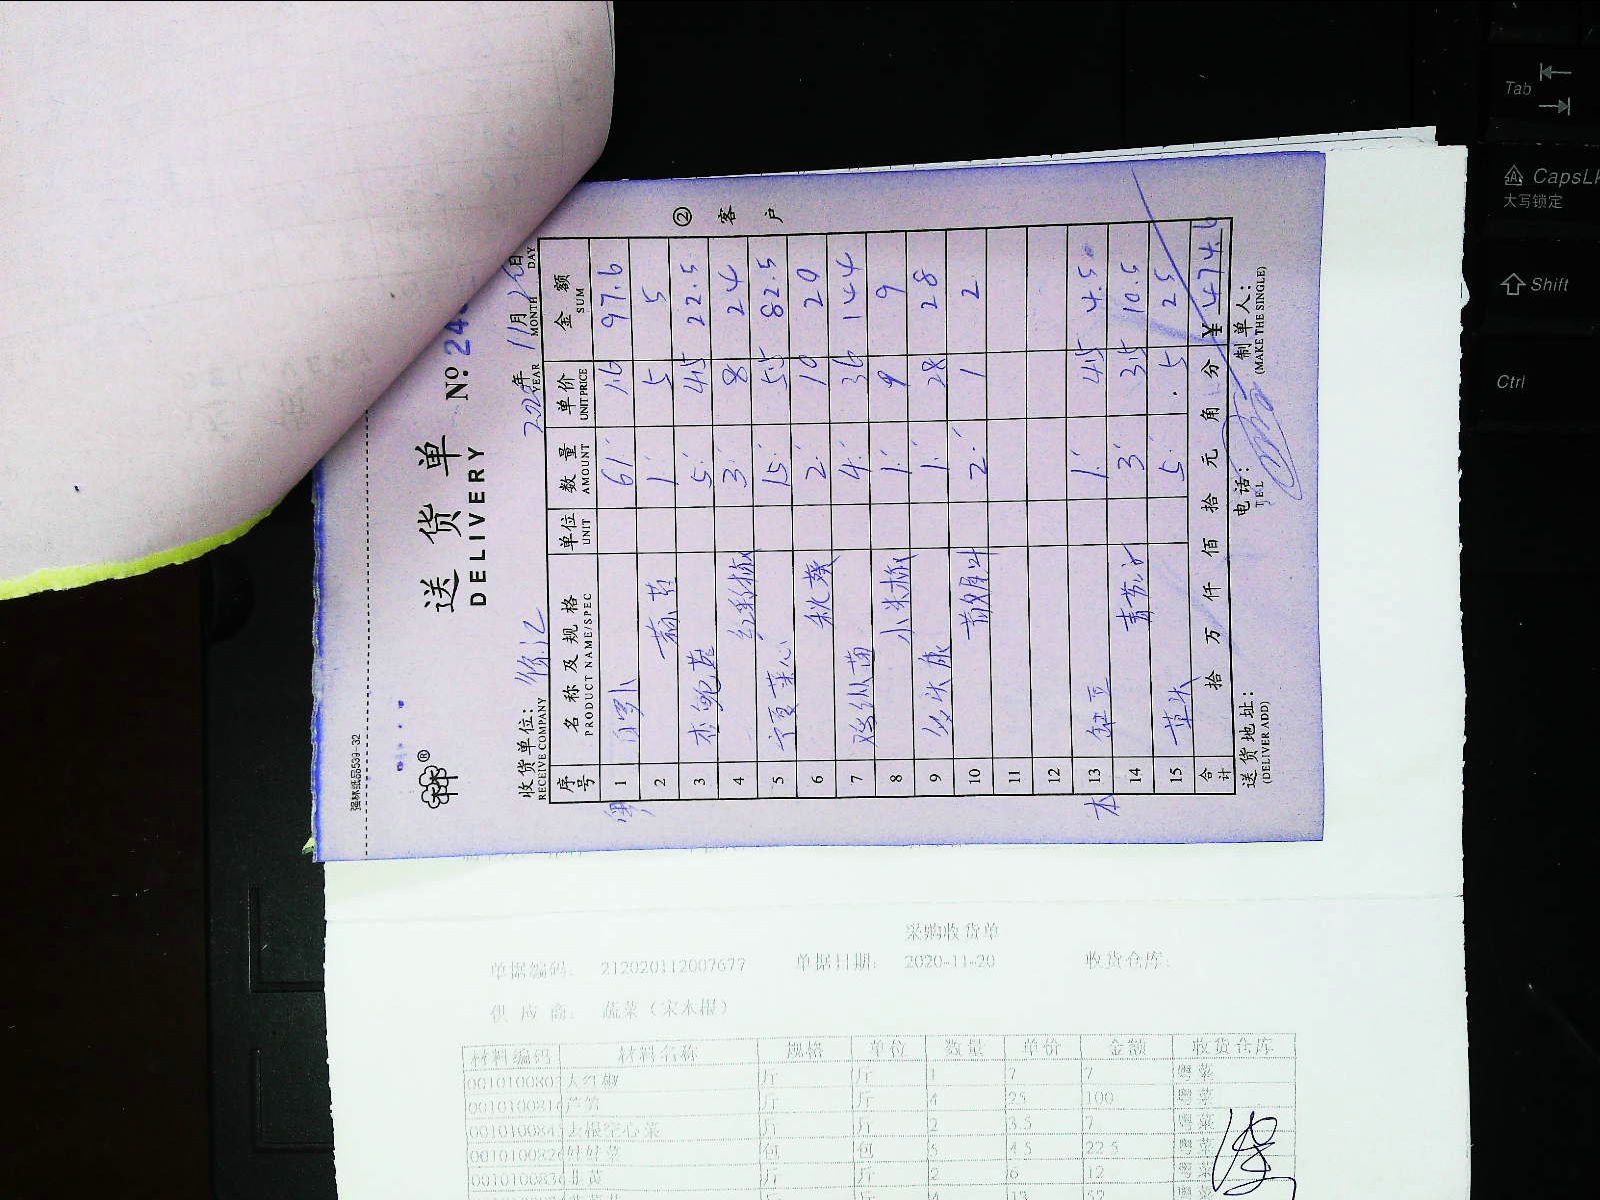 强林纸品539-32
送 货 单
DELIVERY
№ 24
收货单位: 徐汇
RECEIVE COMPANY
2020年 11月 日
YEAR MONTH DAY
② 客 户
序号 名称及规格 单位 数量 单价 金额
PRODUCT NAME/SPEC UNIT AMOUNT UNIT PRICE SUM
粤
1 白罗卜 61 1.6 97.6
2 1 5 5
3 杏鲍菇 5 4.5 22.5
4 红彩椒 3 8 24
5 宁夏菜心 15 5.5 82.5
6 秋葵 2 10 20
7 鸡纵菌 4 36 144
8 小米椒 1 9 9
9 1 28 28
10 2 1 2
11
12
本
13 1 4.5 4.5
14 3 3.5 10.5
15 草头 5 5 25
合计 拾 万 仟 佰 拾 元 角 分 ¥ 474.6
送货地址: 电话: 制单人:
(DELIVER ADD) TEL (MAKE THE SINGLE)
采购收货单
单据编码: 212020112007677 单据日期: 2020-11-20 收货仓库:
供 应 商: 蔬菜（宋本根）
材料编码 材料名称 规格 单位 数量 单价 金额 收货仓库
0010100803 大红椒 斤 斤 1 7 7 粤菜
001010081 芦笋 斤 斤 4 25 100 粤菜
001010084 去根空心菜 斤 斤 2 3.5 7 粤菜
001010082 好好菜 包 包 5 4.5 22.5 粤菜
001010083 韭黄 斤 斤 2 6 12 粤菜
斤 斤 4 13 52 粤菜
Tab
CapsLk
大写锁定
Shift
Ctrl